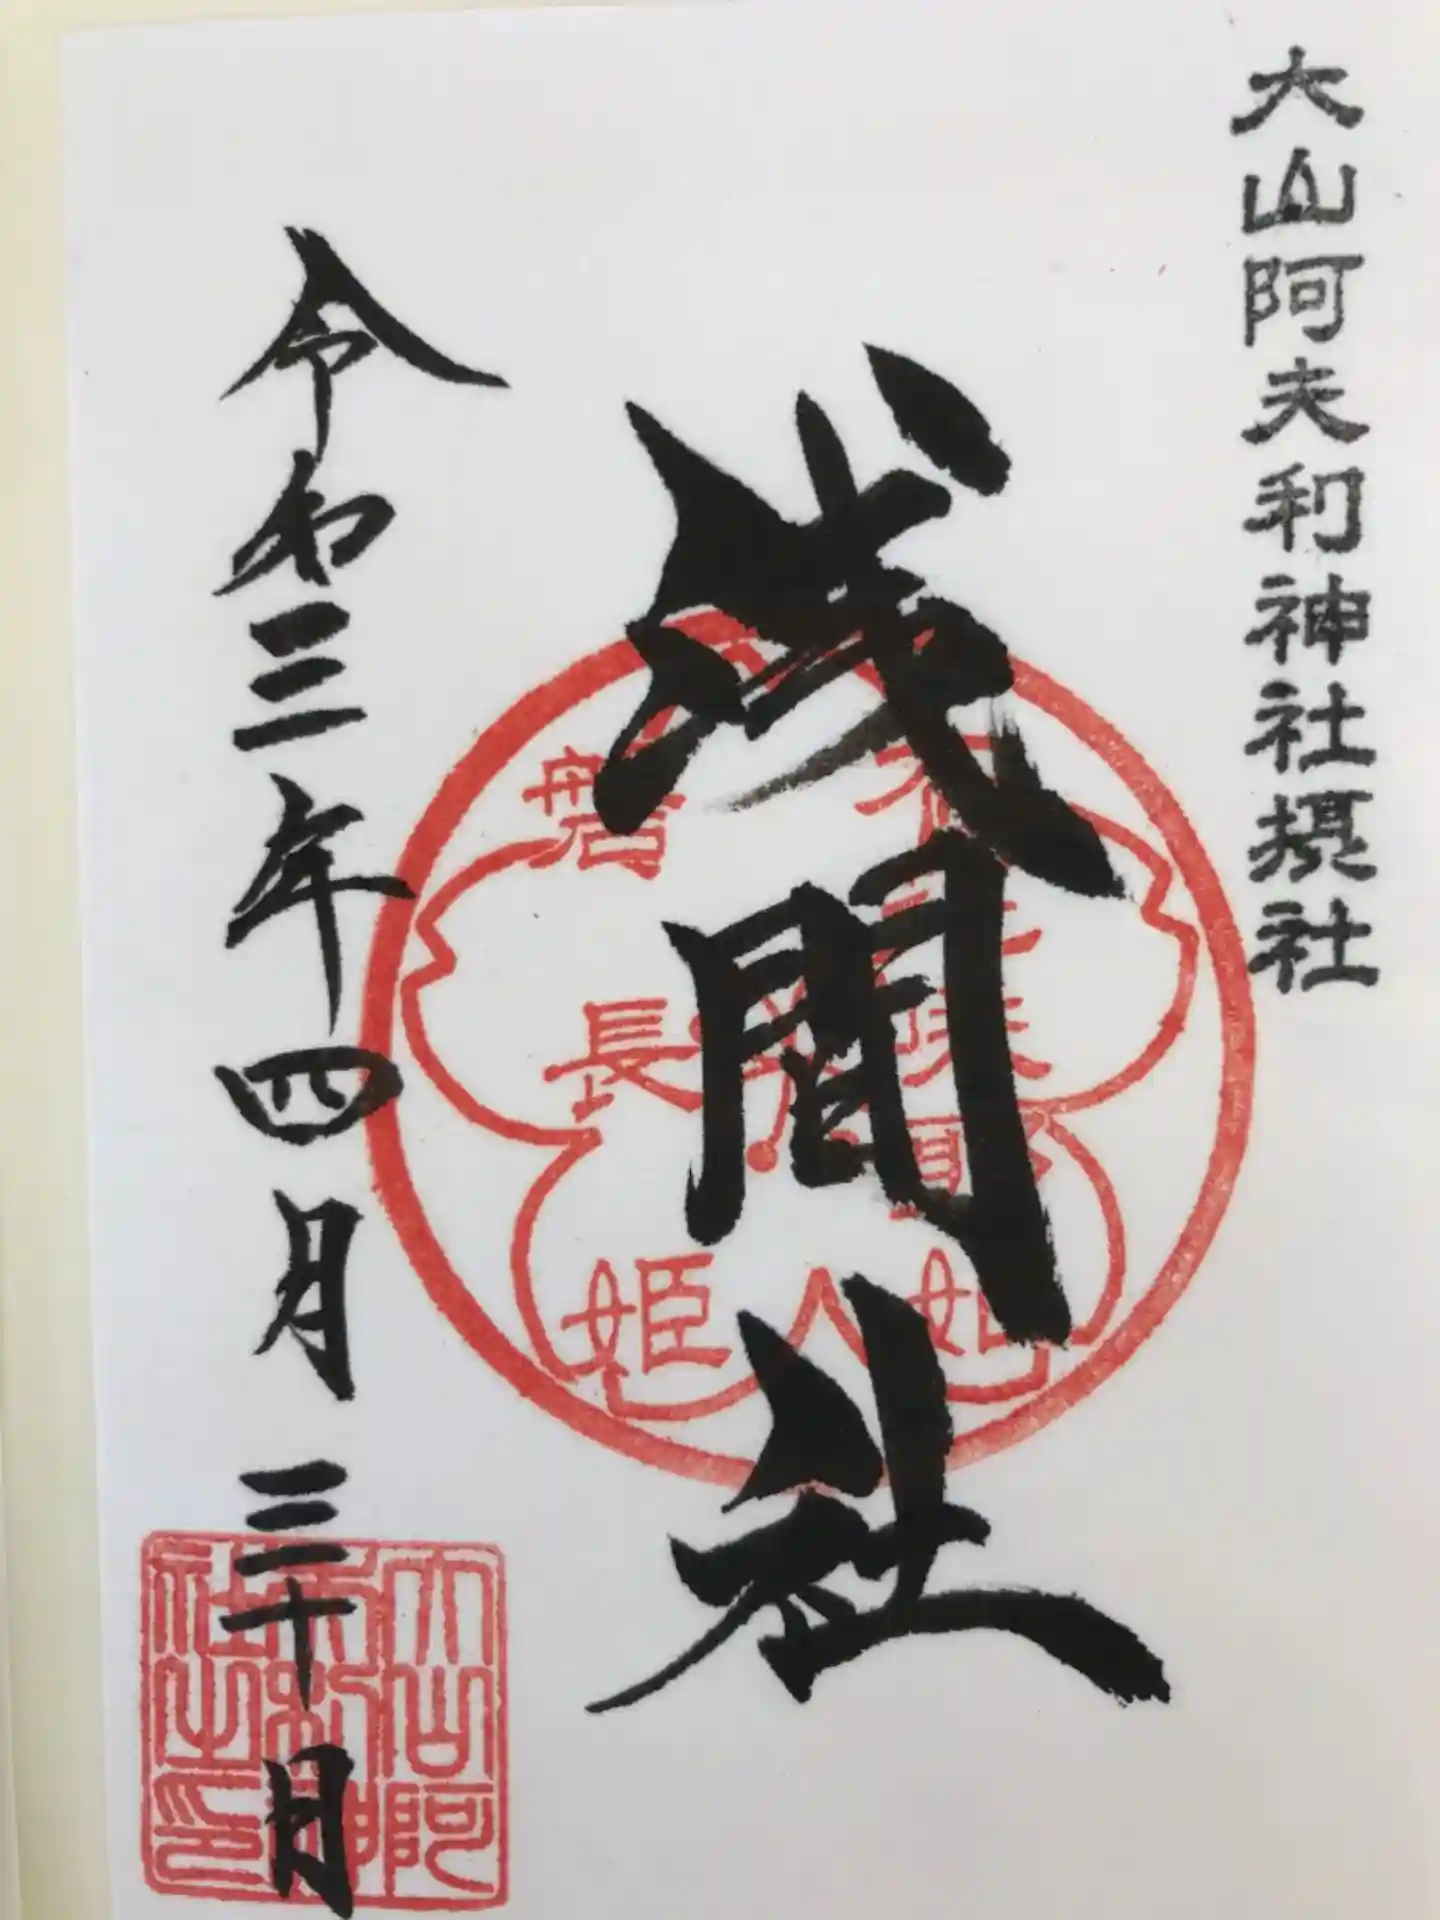 大山阿夫利神社摂社
浅間社
木花咲耶姫
磐長姫
令和三年四月三十日
大山阿
夫利神
社之印